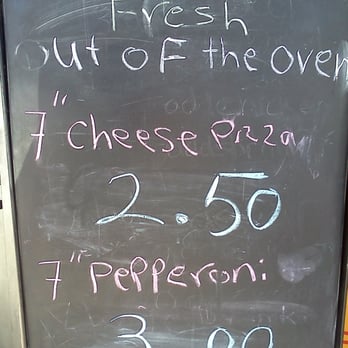 Fresh
out of the oven
7" Cheese Pizza
2.50
7" Pepperoni
3.00